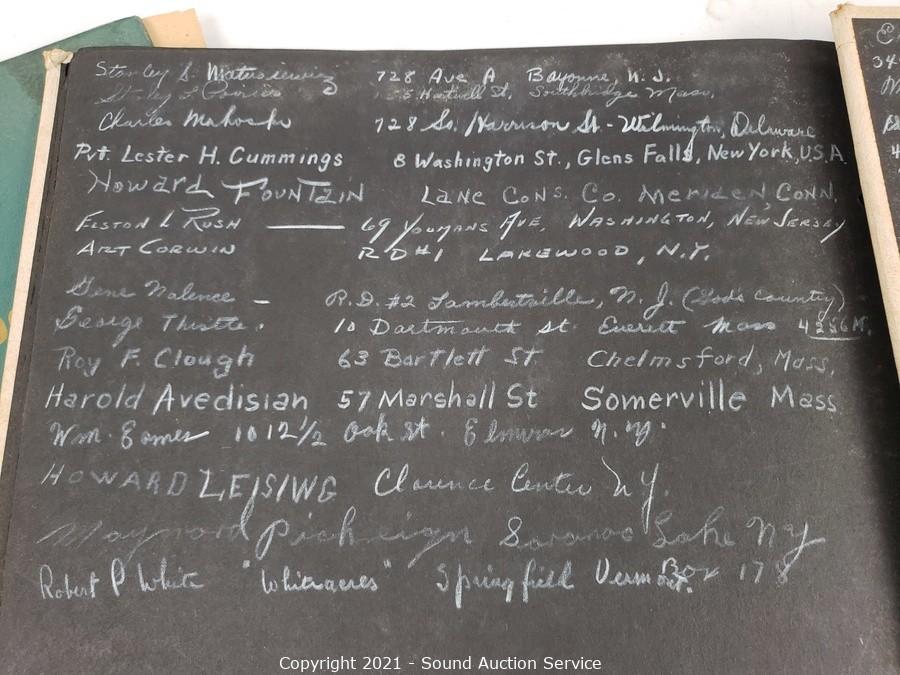 Stanley S. Matusiewicz 728 Ave A, Bayonne, N. J.
Stanley L. Hartwell St, Southbridge Mass.
Charles 728 So. Harrison St - Wilmington, Delaware
Pvt. Lester H. Cummings 8 Washington St., Glens Falls, New York, U.S.A.
Howard Fountain Lane Cons. Co. Meriden, Conn.
Elston L Rush 69 Youmans Ave, Washington, New Jersey
Art Corwin R D #1 Lakewood, N.Y.
Gene Nalence - R.D. #2 Lambertville, N. J. (God's Country)
George Thistle. 10 Dartmouth St. Everett Mass
Roy F. Clough 63 Bartlett St Chelmsford, Mass.
Harold Avedisian 57 Marshall St Somerville Mass
Wm. Eames 1012 1/2 Oak St. Elmira N.Y.
Howard Clarence Center NY.
Maynard Saranac Lake NY
Robert P White "Whitacres" Springfield Vermont. Box 178
34
4
Copyright 2021 - Sound Auction Service